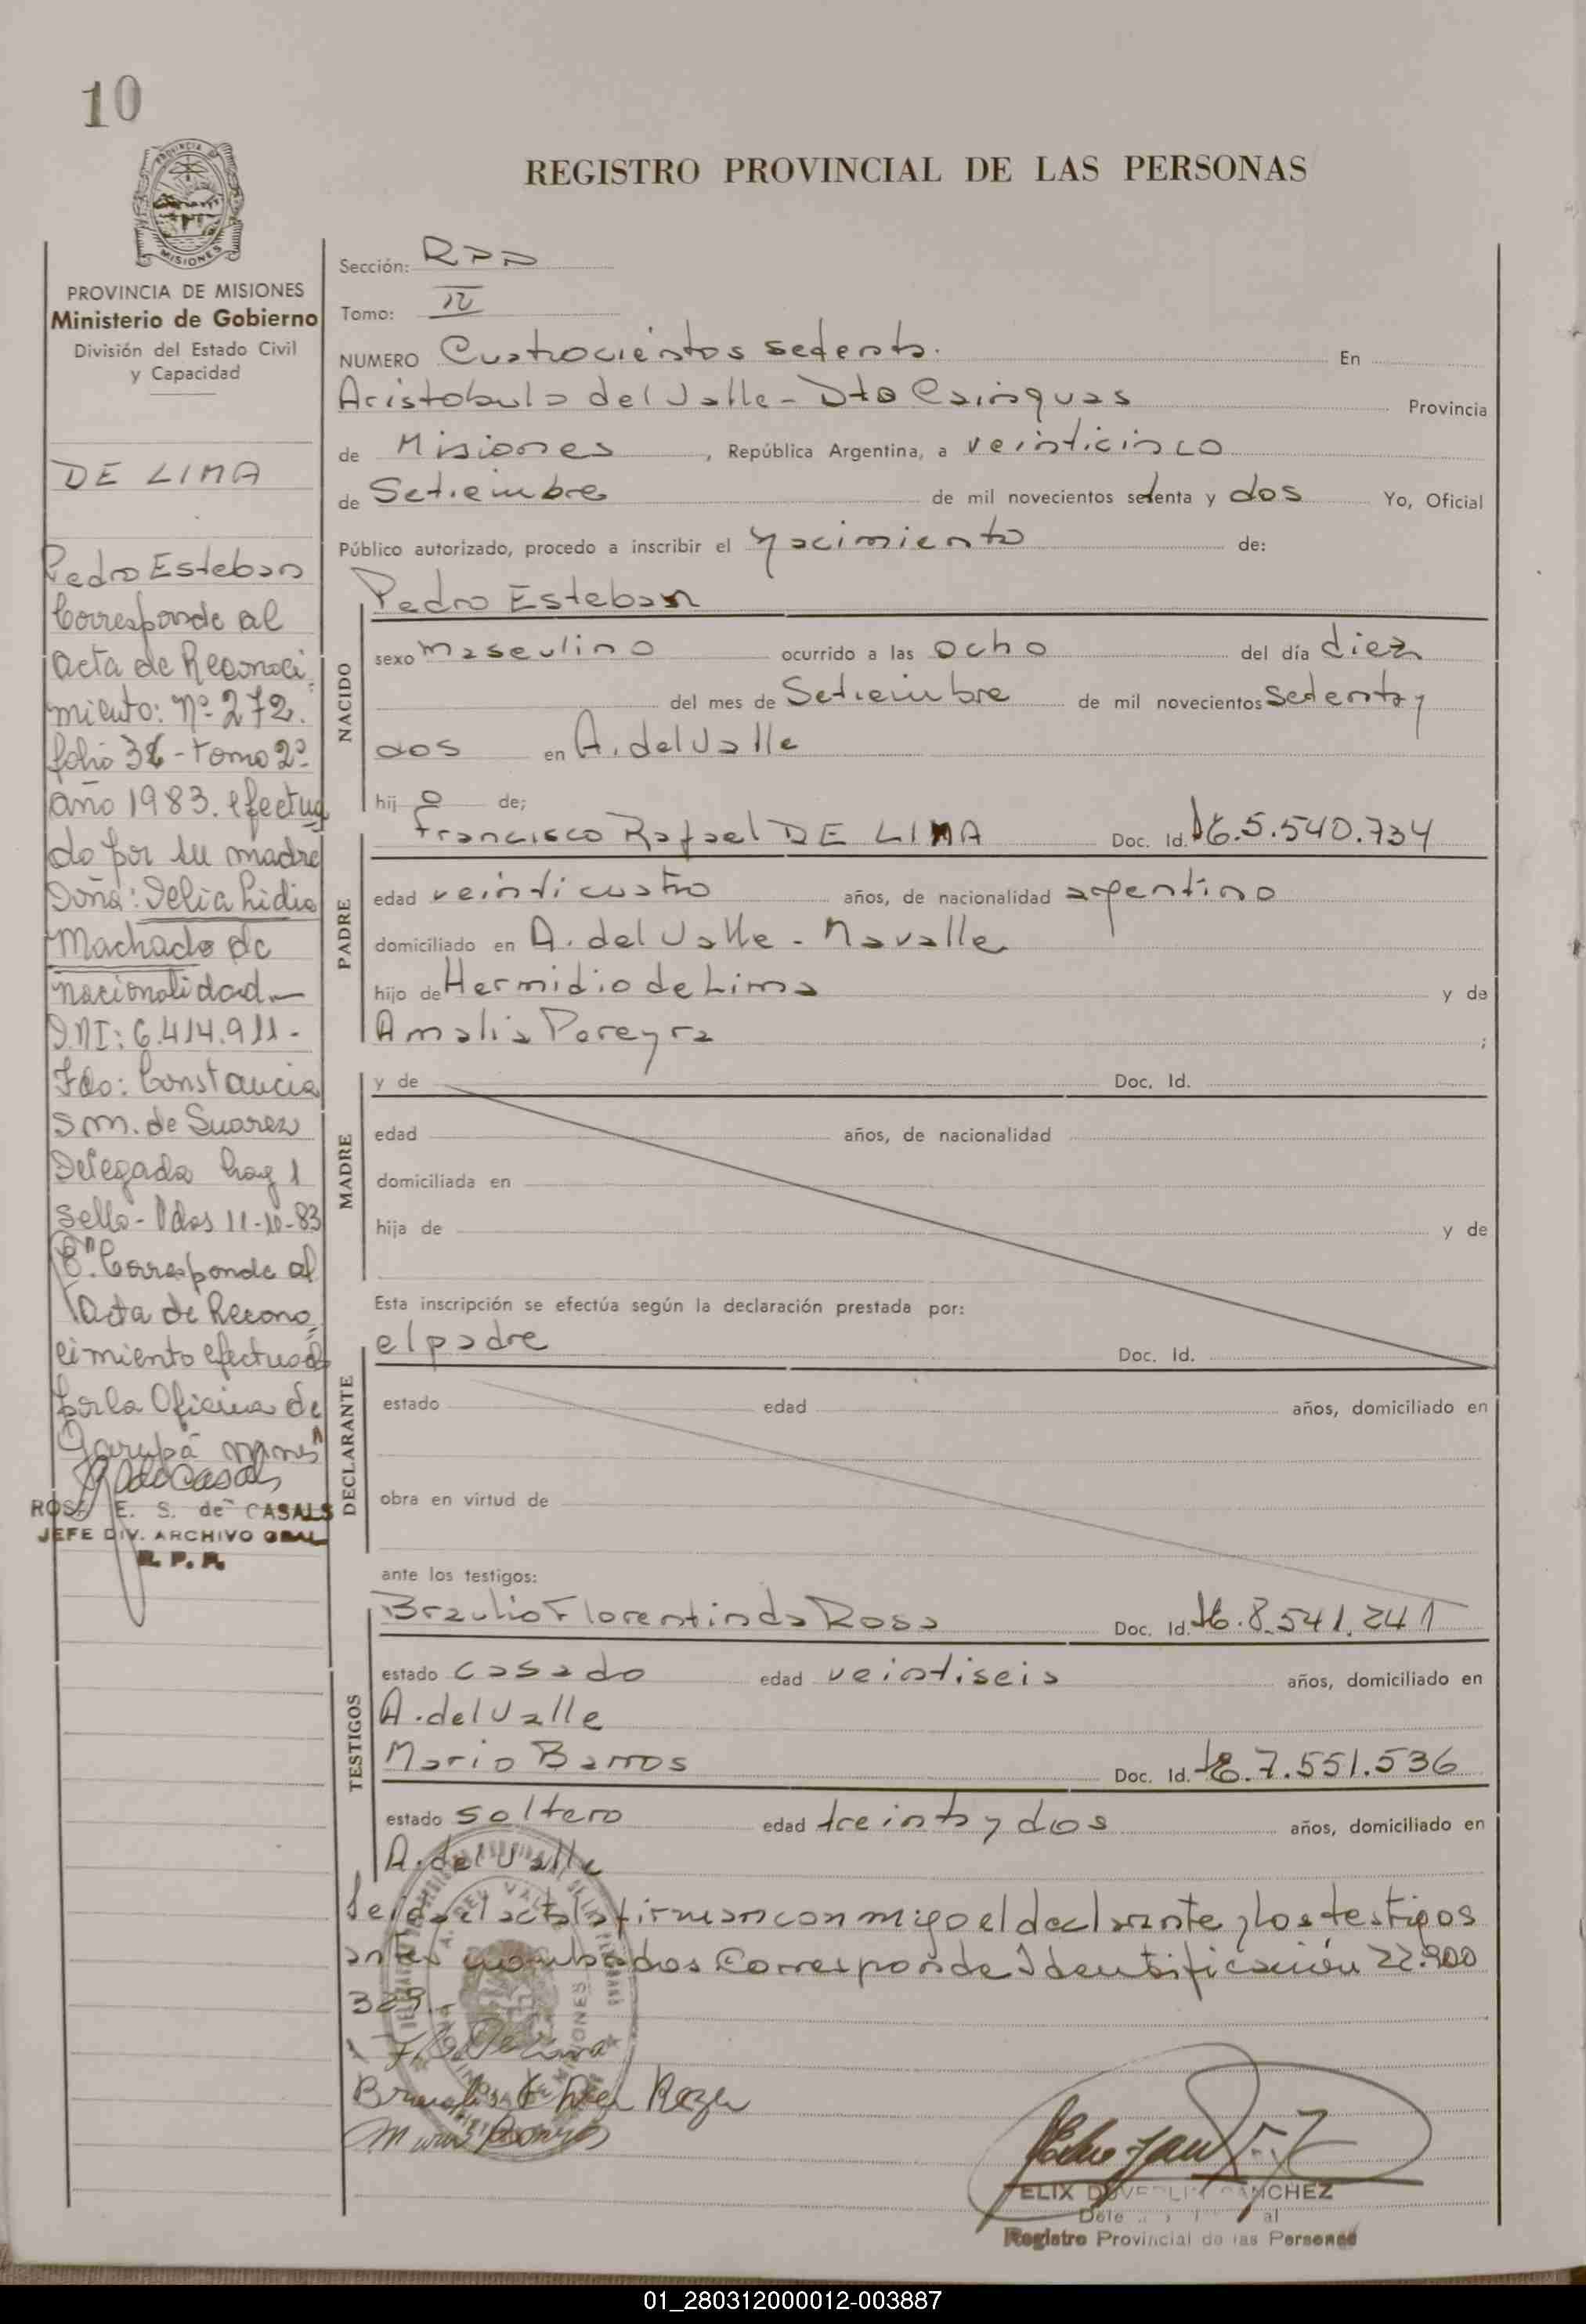 10
PROVINCIA DE
MISIONES
PROVINCIA DE MISIONES
Ministerio de Gobierno
División del Estado Civil
y Capacidad
DE LIMA
Pedro Esteban
Corresponde al
acta de Reconoci
miento: Nº 272.
folio 38 - tomo 2º
año 1983. efectua
do por su madre
Doña: Delia Lidia
Machado de
nacionalidad -
D.N.I: 6.414.911 -
Fdo: Constancia
S m. de Suarez
Delegada hay 1
sello - Pdas 11-10-83
Corresponde al
acta de Recono
cimiento efectuado
por la Oficina de
Garupá mnes
ROSA E. S. de CASALS
JEFE DIV. ARCHIVO GRAL
R. P. P.
REGISTRO PROVINCIAL DE LAS PERSONAS
Sección: RPP
Tomo: IV
NUMERO Cuatrocientos setenta. En
Aristobulo del Valle - Dto Cainguas Provincia
de Misiones, República Argentina, a veinticinco
de Setiembre de mil novecientos setenta y dos Yo, Oficial
Público autorizado, procedo a inscribir el nacimiento de:
NACIDO
Pedro Esteban
sexo masculino ocurrido a las ocho del día diez
del mes de Setiembre de mil novecientos setenta y
dos en A. del Valle
hij o de;
PADRE
Francisco Rafael DE LIMA Doc. Id. 5.540.734
edad veinticuatro años, de nacionalidad argentino
domiciliado en A. del Valle - Navalle
hijo de Hermidio de Lima y de
Amalia Pereyra ;
MADRE
y de Doc. Id.
edad años, de nacionalidad
domiciliada en
hija de y de
Esta inscripción se efectúa según la declaración prestada por:
DECLARANTE
el padre Doc. Id.
estado edad años, domiciliado en
obra en virtud de
ante los testigos:
TESTIGOS
Braulio Florentin da Rosa Doc. Id. 8.541.241
estado casado edad veintiseis años, domiciliado en
A. del Valle
Mario Barros Doc. Id. 7.551.536
estado soltero edad treinta y dos años, domiciliado en
A. del Valle
Leida el acta la firman conmigo el declarante y los testigos
antes nombrados Corresponde Identificación 22.900
329.-
MISIONES
FELIX SANCHEZ
Registro Provincial de las Personas
01_280312000012-003887